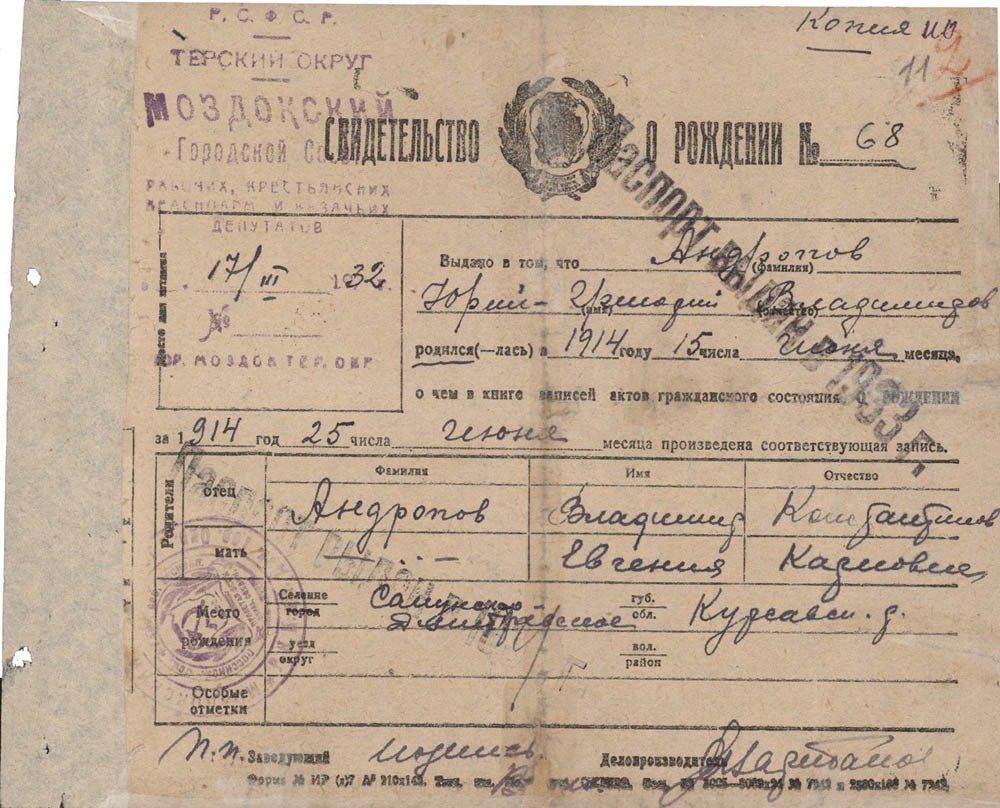 Копия
11 2
Р. С. Ф. С. Р.
ТЕРСКИЙ ОКРУГ
МОЗДОКСКИЙ
Городской Со
РАБОЧИХ, КРЕСТЬЯНСКИХ
КРАСНОАРМ. И КАЗАЧЬИХ
ДЕПУТАТОВ
17/III 1932
№
ГОР. МОЗДОК ТЕР. ОКР.
Место для штампа
СВИДЕТЕЛЬСТВО О РОЖДЕНИИ № 68
Паспорт выдан в 1933 г.
Выдано в том, что Андропов
(фамилия)
Юрий- Владимиров
(имя) (отчество)
родился(—лась) в 1914 году 15 числа июня месяца,
о чем в книге записей актов гражданского состояния о рождении
за 1914 год 25 числа июня месяца произведена соответствующая запись.
Родители
Фамилия Имя Отчество
отец Андропов Владимир Константинов
мать -"- Евгения Карловна
Паспорт выдан
Место рождения
Селение
город
губ.
обл. Курсавск. р.
уезд
округ
вол.
район
Особые
отметки
п.п. Заведующий подпись Делопроизводитель
Форма № ИР (з)7 А5 210х148.